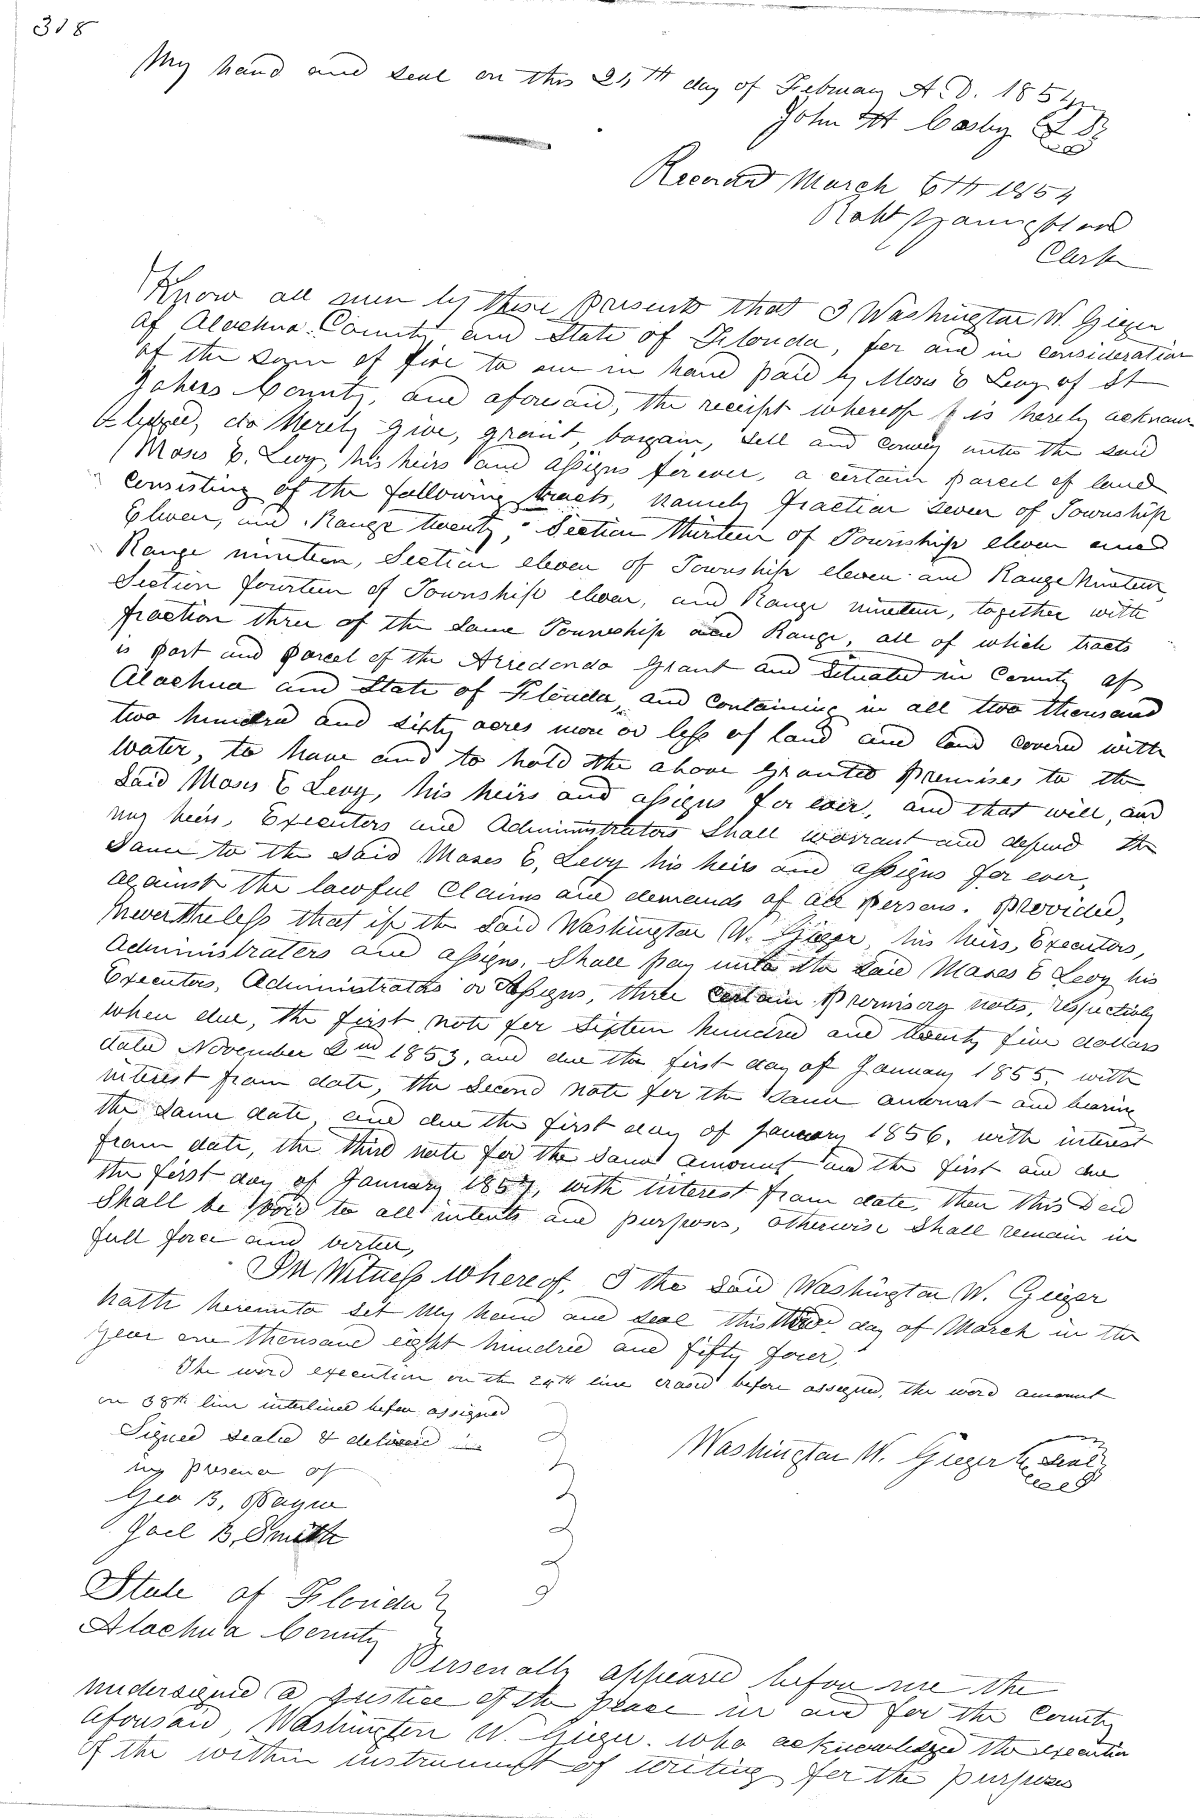 318
My hand and seal on this 24th day of February A.D. 1854
John H Cosby L S
Record March 6TH 1854
Robt Youngblood
Clerk
Know all men by these presents that I Washington W. Gieger
of Alachua County and State of Florida, for and in consideration
of the sum of five to me in hand paid by Moses E Levy of St
Johns County, and aforesaid, the receipt whereof is hereby acknow
ledged, do hereby give, grant, bargain, sell and convey unto the said
Moses E. Levy, his heirs and assigns forever, a certain parcel of land
consisting of the following tracts, namely fraction seven of Township
Eleven, and Range twenty, Section thirteen of Township eleven and
Range nineteen, Section eleven of Township eleven and Range Nineteen,
Section fourteen of Township eleven, and Range nineteen, together with
fraction three of the same Township and Range, all of which tracts
is part and parcel of the Arredondo Grant and situated in County of
Alachua and State of Florida, and containing in all two thousand
two hundred and sixty acres more or less of land and land covered with
water, to have and to hold the above granted premises to the
said Moses E Levy, his heirs and assigns for ever, and that will, and
my heirs, Executors and Administrators shall warrant and defend the
same to the said Moses E, Levy his heirs and assigns for ever,
against the lawful claims and demands of all persons. Provided,
nevertheless that if the said Washington W. Gieger, his heirs, Executors,
Administrators and assigns, shall pay unto the said Moses E Levy his
Executors, Administrators or Assigns, three certain promisory notes, respectively
when due, the first note for sixteen hundred and twenty five dollars
dated November 2nd 1853, and due the first day of January 1855, with
interest from date, the second note for the same amount and bearing
the same date, and due the first day of January 1856, with interest
from date, the third note for the same amount and the first and due
the first day of January 1857, with interest from date, then this Deed
shall be void to all intents and purposes, otherwise shall remain in
full force and virtue,
In Witness whereof, I the said Washington W. Gieger
hath hereunto set my hand and seal this third day of March in the
year one thousand eight hundred and fifty four,
The word execution on the 24th line erased before assigned, the word amount
on 38th line interlined before assigned
Signed sealed & delivered in
my presence of
Geo B, Payne
Joel B, Smith
Washington W. Gieger seal
State of Florida
Alachua County
Personally appeared before me the
undersigned a Justice of the peace in and for the County
Aforesaid, Washington W. Gieger. who acknowledged the execution
of the within instrument of writing for the purposes